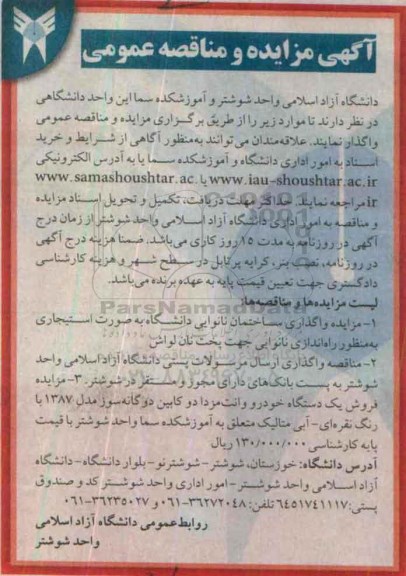 آگهی مزایده و مناقصه عمومی
دانشگاه آزاد اسلامی واحد شوشتر و آموزشکده سما این واحد دانشگاهی
در نظر دارند تا موارد زیر را از طریق برگزاری مزایده و مناقصه عمومی
واگذار نمایند. علاقه‌مندان می‌توانند به‌منظور آگاهی از شرایط و خرید
اسناد به امور اداری دانشگاه و آموزشکده سما یا به آدرس الکترونیکی
www.iau-shoushtar.ac.ir یا www.samashoushtar.ac.
ir مراجعه نمایند. حداکثر مهلت دریافت، تکمیل و تحویل اسناد مزایده
و مناقصه به امور اداری دانشگاه آزاد اسلامی واحد شوشتر از زمان درج
آگهی در روزنامه به مدت ۱۵ روز کاری می‌باشد. ضمنا هزینه درج آگهی
در روزنامه، نصب بنر، کرایه پرتابل در سطح شهر و هزینه کارشناسی
دادگستری جهت تعیین قیمت پایه به عهده برنده می‌باشد.
لیست مزایده‌ها و مناقصه‌ها:
۱- مزایده واگذاری ساختمان نانوایی دانشگاه به صورت استیجاری
به‌منظور راه‌اندازی نانوایی جهت پخت نان لواش
۲- مناقصه واگذاری ارسال مرسولات پستی دانشگاه آزاد اسلامی واحد
شوشتر به پست بانک‌های دارای مجوز و مستقر در شوشتر. ۳- مزایده
فروش یک دستگاه خودرو وانت‌مزدا دو کابین دوگانه‌سوز مدل ۱۳۸۷ با
رنگ نقره‌ای- آبی متالیک متعلق به آموزشکده سما واحد شوشتر با قیمت
پایه کارشناسی ۱۳۰/۰۰۰/۰۰۰ ریال
آدرس دانشگاه: خوزستان، شوشتر- شوشترنو- بلوار دانشگاه- دانشگاه
آزاد اسلامی واحد شوشتر- امور اداری واحد شوشتر کد و صندوق
پستی: ۶۴۵۱۷۴۱۱۱۷ تلفن: ۳۶۲۷۲۰۴۸-۰۶۱ و ۳۶۲۳۵۰۲۷-۰۶۱
روابط‌عمومی دانشگاه آزاد اسلامی
واحد شوشتر
ParsNamadData